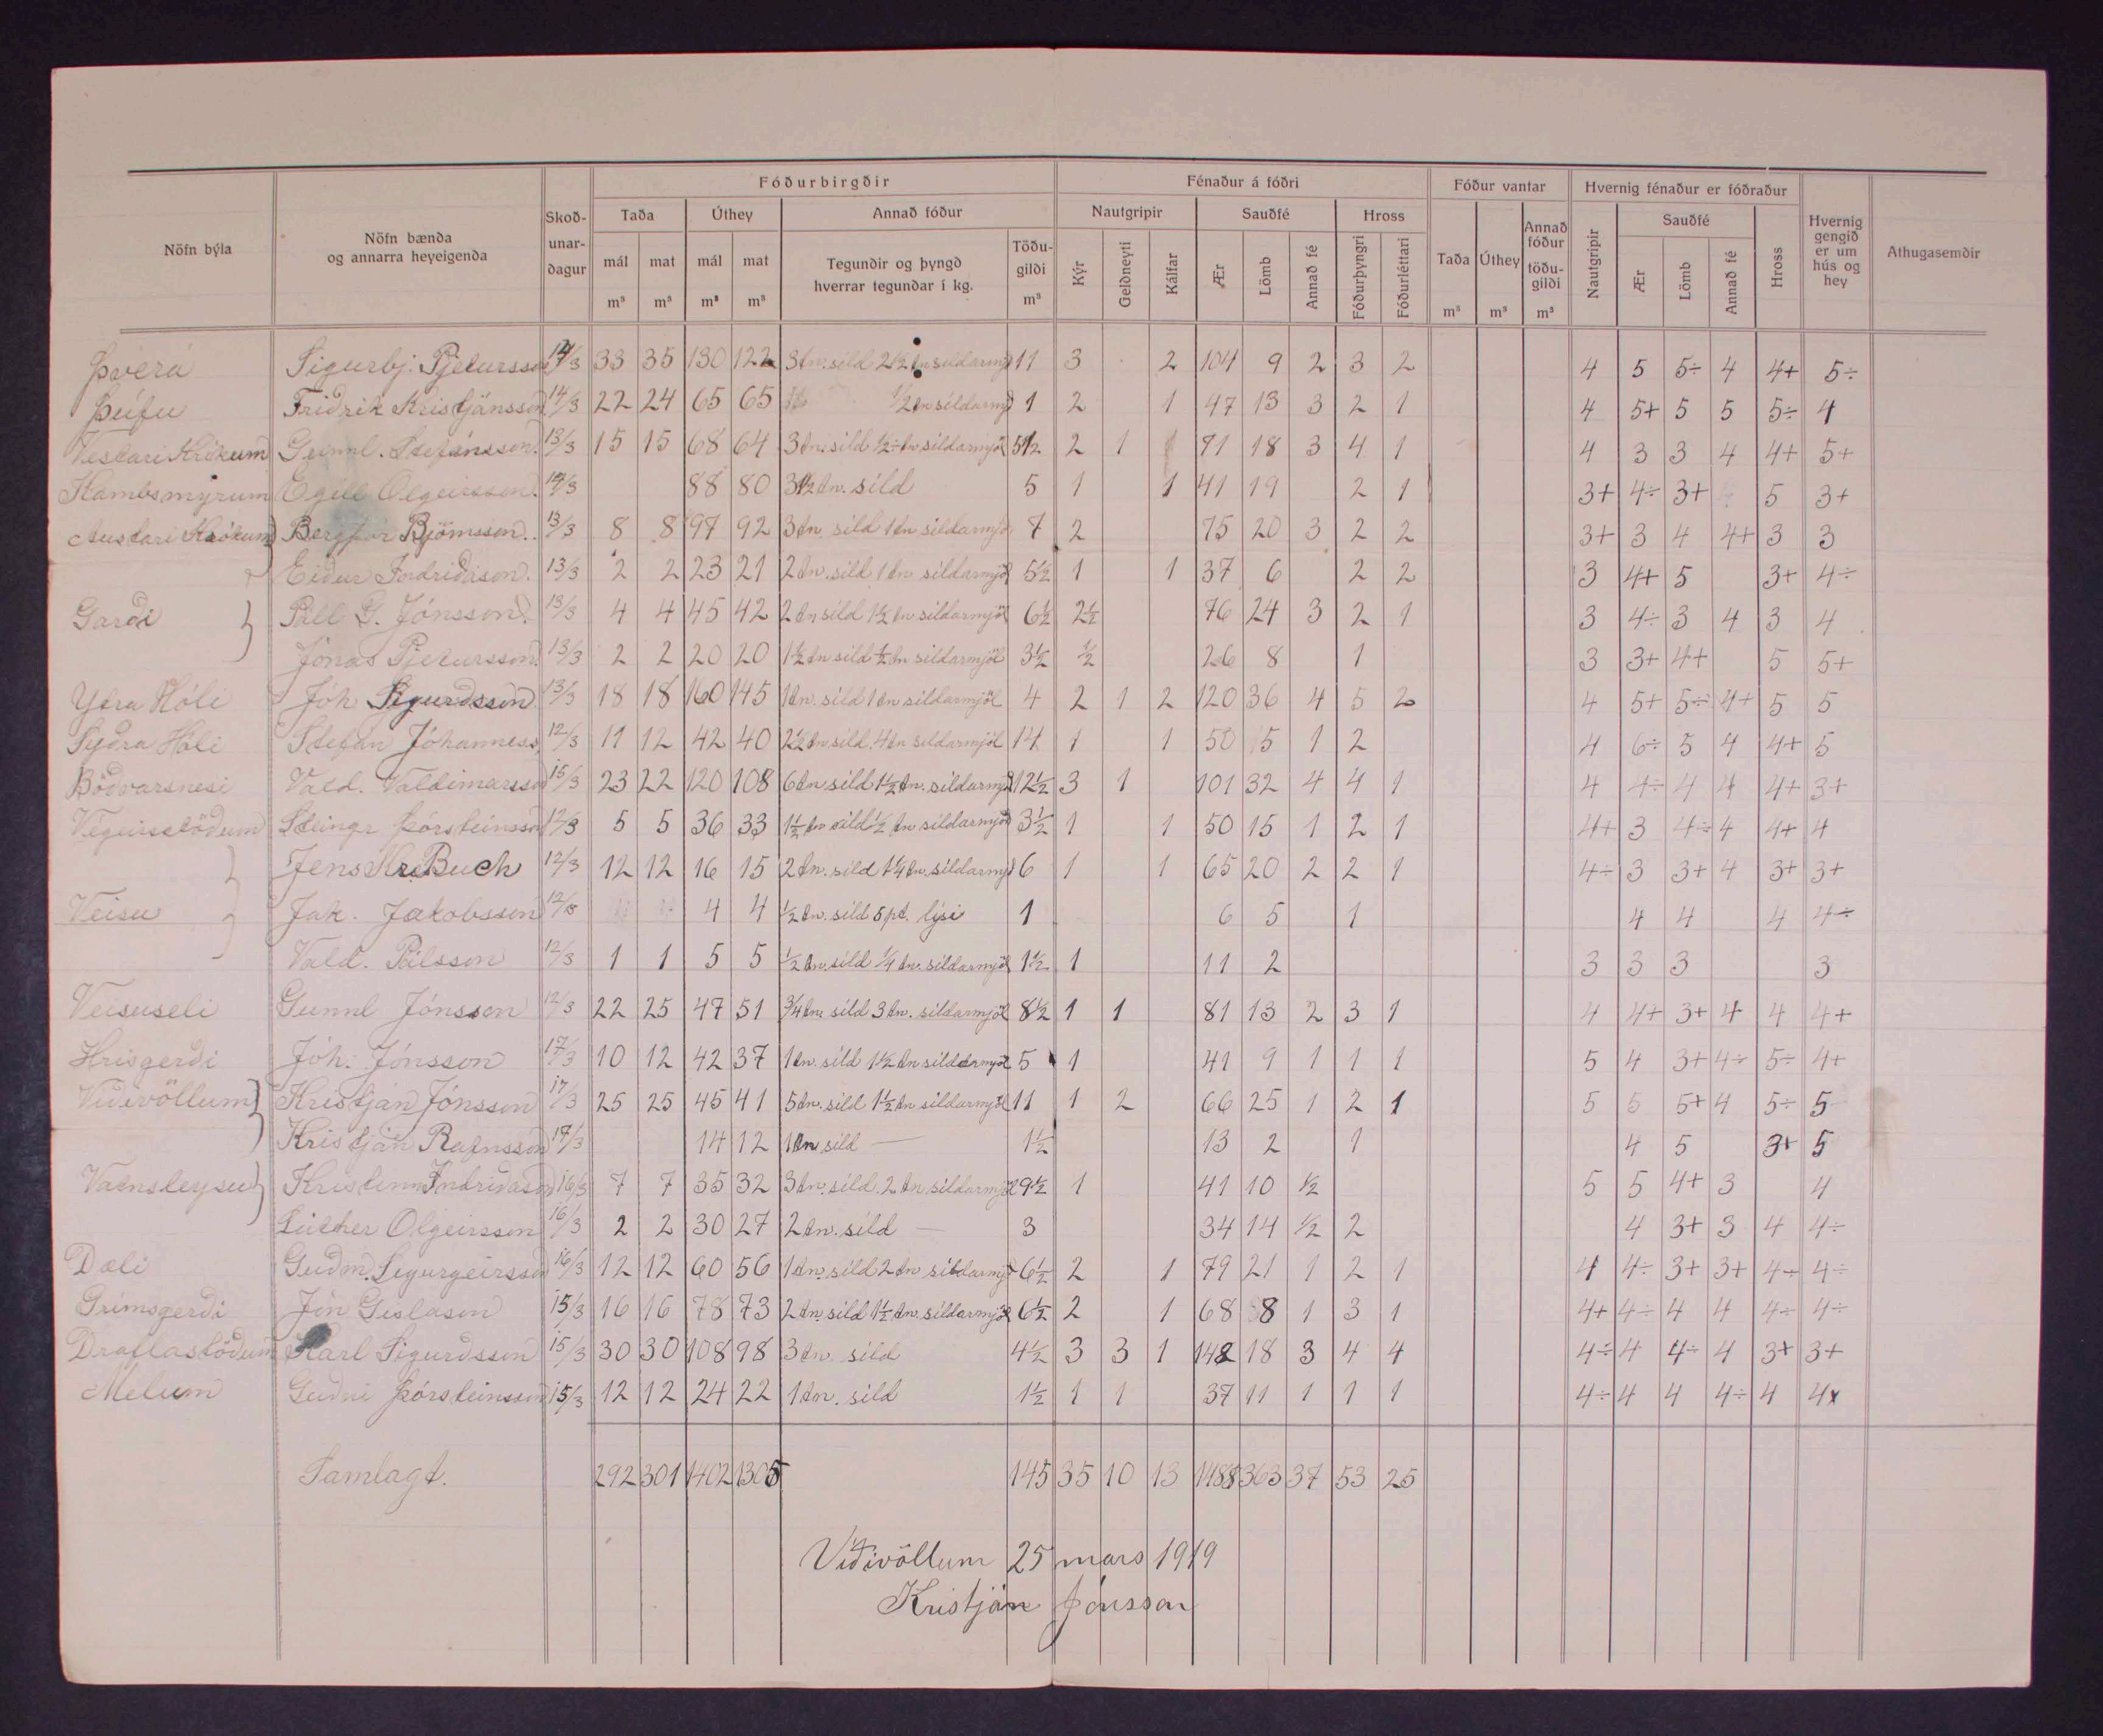 Fóðurbirgðir Fénaður á fóðri Fóður vantar Hvernig fénaður er fóðraður
Nöfn býla Nöfn bænda og annarra heyeigenda Skoð-unar-ðagur Taða Úthey Annað fóður Nautgripir Sauðfé Hross Taða Úthey Annað fóður töðu-gilði Nautgripir Sauðfé Hross Hvernig gengið er um hús og hey Athugasemðir
mál mat mál mat Tegunðir og þyngð hverrar tegunðar í kg. Töðu-gilði Kýr Gelðneyti Kálfar Ær Lömb Annað fé Fóðurþyngri Fóðurléttari Ær Lömb Annað fé
m³ m³ m³ m³ m³ m³ m³ m³
Þverá Sigurbj. Pjetursson 14/3 33 35 130 122 3 tn. síld 2 1/2 tn síldarmj 11 3 2 104 9 2 3 2 4 5 5÷ 4 4+ 5÷
Þúfu Friðrik Kristjánsson 14/3 22 24 65 65 1/2 tn síldarmj 1 2 1 47 13 3 2 1 4 5+ 5 5 5÷ 4
Vestari Krókum Gunnl. Stefánsson 13/3 15 15 68 64 3 tn. síld 1/2÷ tn síldarmjöl 5 1/2 2 1 71 18 3 4 1 4 3 3 4 4+ 5+
Kambsmýrum Egill Olgeirsson 14/3 88 80 3 1/2 tn. síld 5 1 1 41 19 2 1 3+ 4÷ 3+ 5 3+
Austari Krókum Bergþór Björnsson 13/3 8 8 97 92 3 tn síld 1 tn síldarmjö 7 2 75 20 3 2 2 3+ 3 4 4+ 3 3
Eiður Indriðason 13/3 2 2 23 21 2 tn. síld 1 tn síldarmjöl 5 1/2 1 1 37 6 2 2 3 4+ 5 3+ 4÷
Garði Páll G. Jónsson 13/3 4 4 45 42 2 tn síld 1 1/2 tn síldarmjöl 6 1/2 2 1/2 76 24 3 2 1 3 4÷ 3 4 3 4
Jónas Pjetursson 13/3 2 2 20 20 1 1/2 tn síld 1/2 tn síldarmjöl 3 1/2 1/2 26 8 1 3 3+ 4+ 5 5+
Ytra Hóli Jóh Sigurðsson 13/3 18 18 160 145 1 tn. síld 1 tn síldarmjöl 4 2 1 2 120 36 4 5 2 4 5+ 5÷ 4+ 5 5
Syðra Hóli Stefán Jóhanness 12/3 11 12 42 40 2 1/2 tn. síld. 4 tn síldarmjöl 14 1 1 50 15 1 2 4 6÷ 5 4 4+ 5
Böðvarsnesi Vald. Valdimarsson 15/3 23 22 120 108 6 tn síld 1 1/2 tn. síldarmjöl 12 1/2 3 1 101 32 4 4 1 4 4÷ 4 4 4+ 3+
Végeirsstöðum Steingr Þórsteinsson 12/3 5 5 36 33 1 1/2 tn síld 1/2 tn síldarmjöl 3 1/2 1 1 50 15 1 2 1 4+ 3 4÷ 4 4+ 4
Jens Kr. Buch 12/3 12 12 16 15 2 tn. síld 1 1/4 tn. síldarmjöl 6 1 1 65 20 2 2 1 4÷ 3 3+ 4 3+ 3+
Veisu Jak. Jakobsson 12/3 4 4 1/2 tn. síld 5 pt. lýsi 1 6 5 1 4 4 4 4÷
Vald. Pálsson 12/3 1 1 5 5 1/2 tn. síld 1/4 tn. síldarmjöl 1 1/2 1 11 2 3 3 3 3
Veisuseli Gunnl Jónsson 12/3 22 25 47 51 3/4 tn. síld 3 tn. síldarmjöl 8 1/2 1 1 81 13 2 3 1 4 4+ 3+ 4 4 4+
Hrisgerði Jóh. Jónsson 17/3 10 12 42 37 1 tn. síld 1 1/2 tn síldarmjöl 5 1 41 9 1 1 1 5 4 3+ 4÷ 5÷ 4+
Viðivöllum Kristján Jónsson 17/3 25 25 45 41 5 tn. síld 1 1/2 tn síldarmjöl 11 1 2 66 25 1 2 1 5 5 5+ 4 5÷ 5
Kristján Rafnsson 17/3 14 12 1 tn síld — 1 1/2 13 2 1 4 5 3+ 5
Vatnsleysu Kristinn Indriðason 16/3 7 7 35 32 3 tn. síld. 2 tn. síldarmjöl 9 1/2 1 41 10 1/2 5 5 4+ 3 4
Lúther Olgeirsson 16/3 2 2 30 27 2 tn. síld — 3 34 14 1/2 2 4 3+ 3 4 4÷
Dæli Guðm. Sigurgeirsson 16/3 12 12 60 56 1 tn. síld 2 tn síldarmjö 6 1/2 2 1 79 21 1 2 1 4 4÷ 3+ 3+ 4÷ 4÷
Grímsgerði Jón Gíslason 15/3 16 16 78 73 2 tn síld 1 1/2 tn. síldarmjöl 6 1/2 2 1 68 8 1 3 1 4+ 4÷ 4 4 4÷ 4÷
Draflastöðum Karl Sigurðsson 15/3 30 30 108 98 3 tn. síld 4 1/2 3 3 1 142 18 3 4 4 4÷ 4 4÷ 4 3+ 3+
Melum Guðni Þórsteinsson 15/3 12 12 24 22 1 tn. síld 1 1/2 1 1 37 11 1 1 1 4÷ 4 4 4÷ 4 4x
Samlagt. 292 301 1402 1305 145 35 10 13 1488 363 37 53 25
Viðivöllum 25 mars 1919
Kristján Jónsson